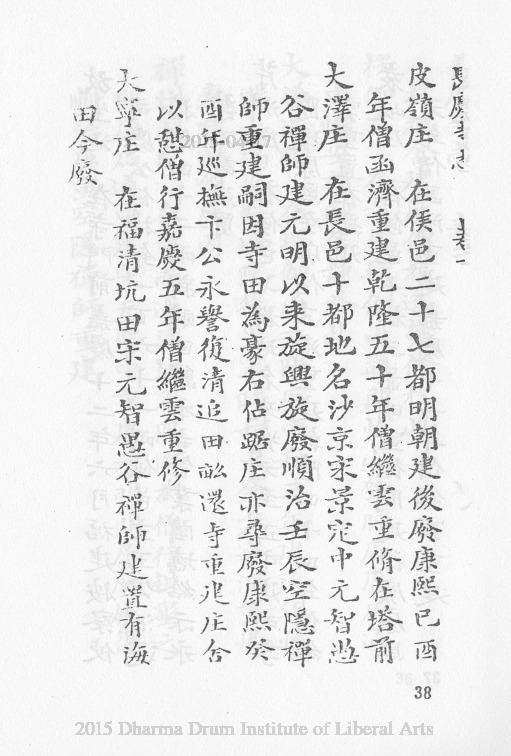 長慶寺志 卷一
皮嶺庄 在侯邑二十七都明朝建後廢康熙己酉
年僧函濟重建乾隆五十年僧繼雲重脩在塔前
大澤庄 在長邑十都地名沙京宋景定中元智愚
谷禪師建元明以来旋興旋廢順治壬辰空隱禪
師重建嗣因寺田為豪右佔踞庄亦尋廢康熙癸
酉年巡撫卞公永譽復清追田畝還寺重建庄舍
以憩僧行嘉慶五年僧繼雲重修
大寧庄 在福清坑田宋元智愚谷禪師建置有海
田今廢
38
2015 Dharma Drum Institute of Liberal Arts